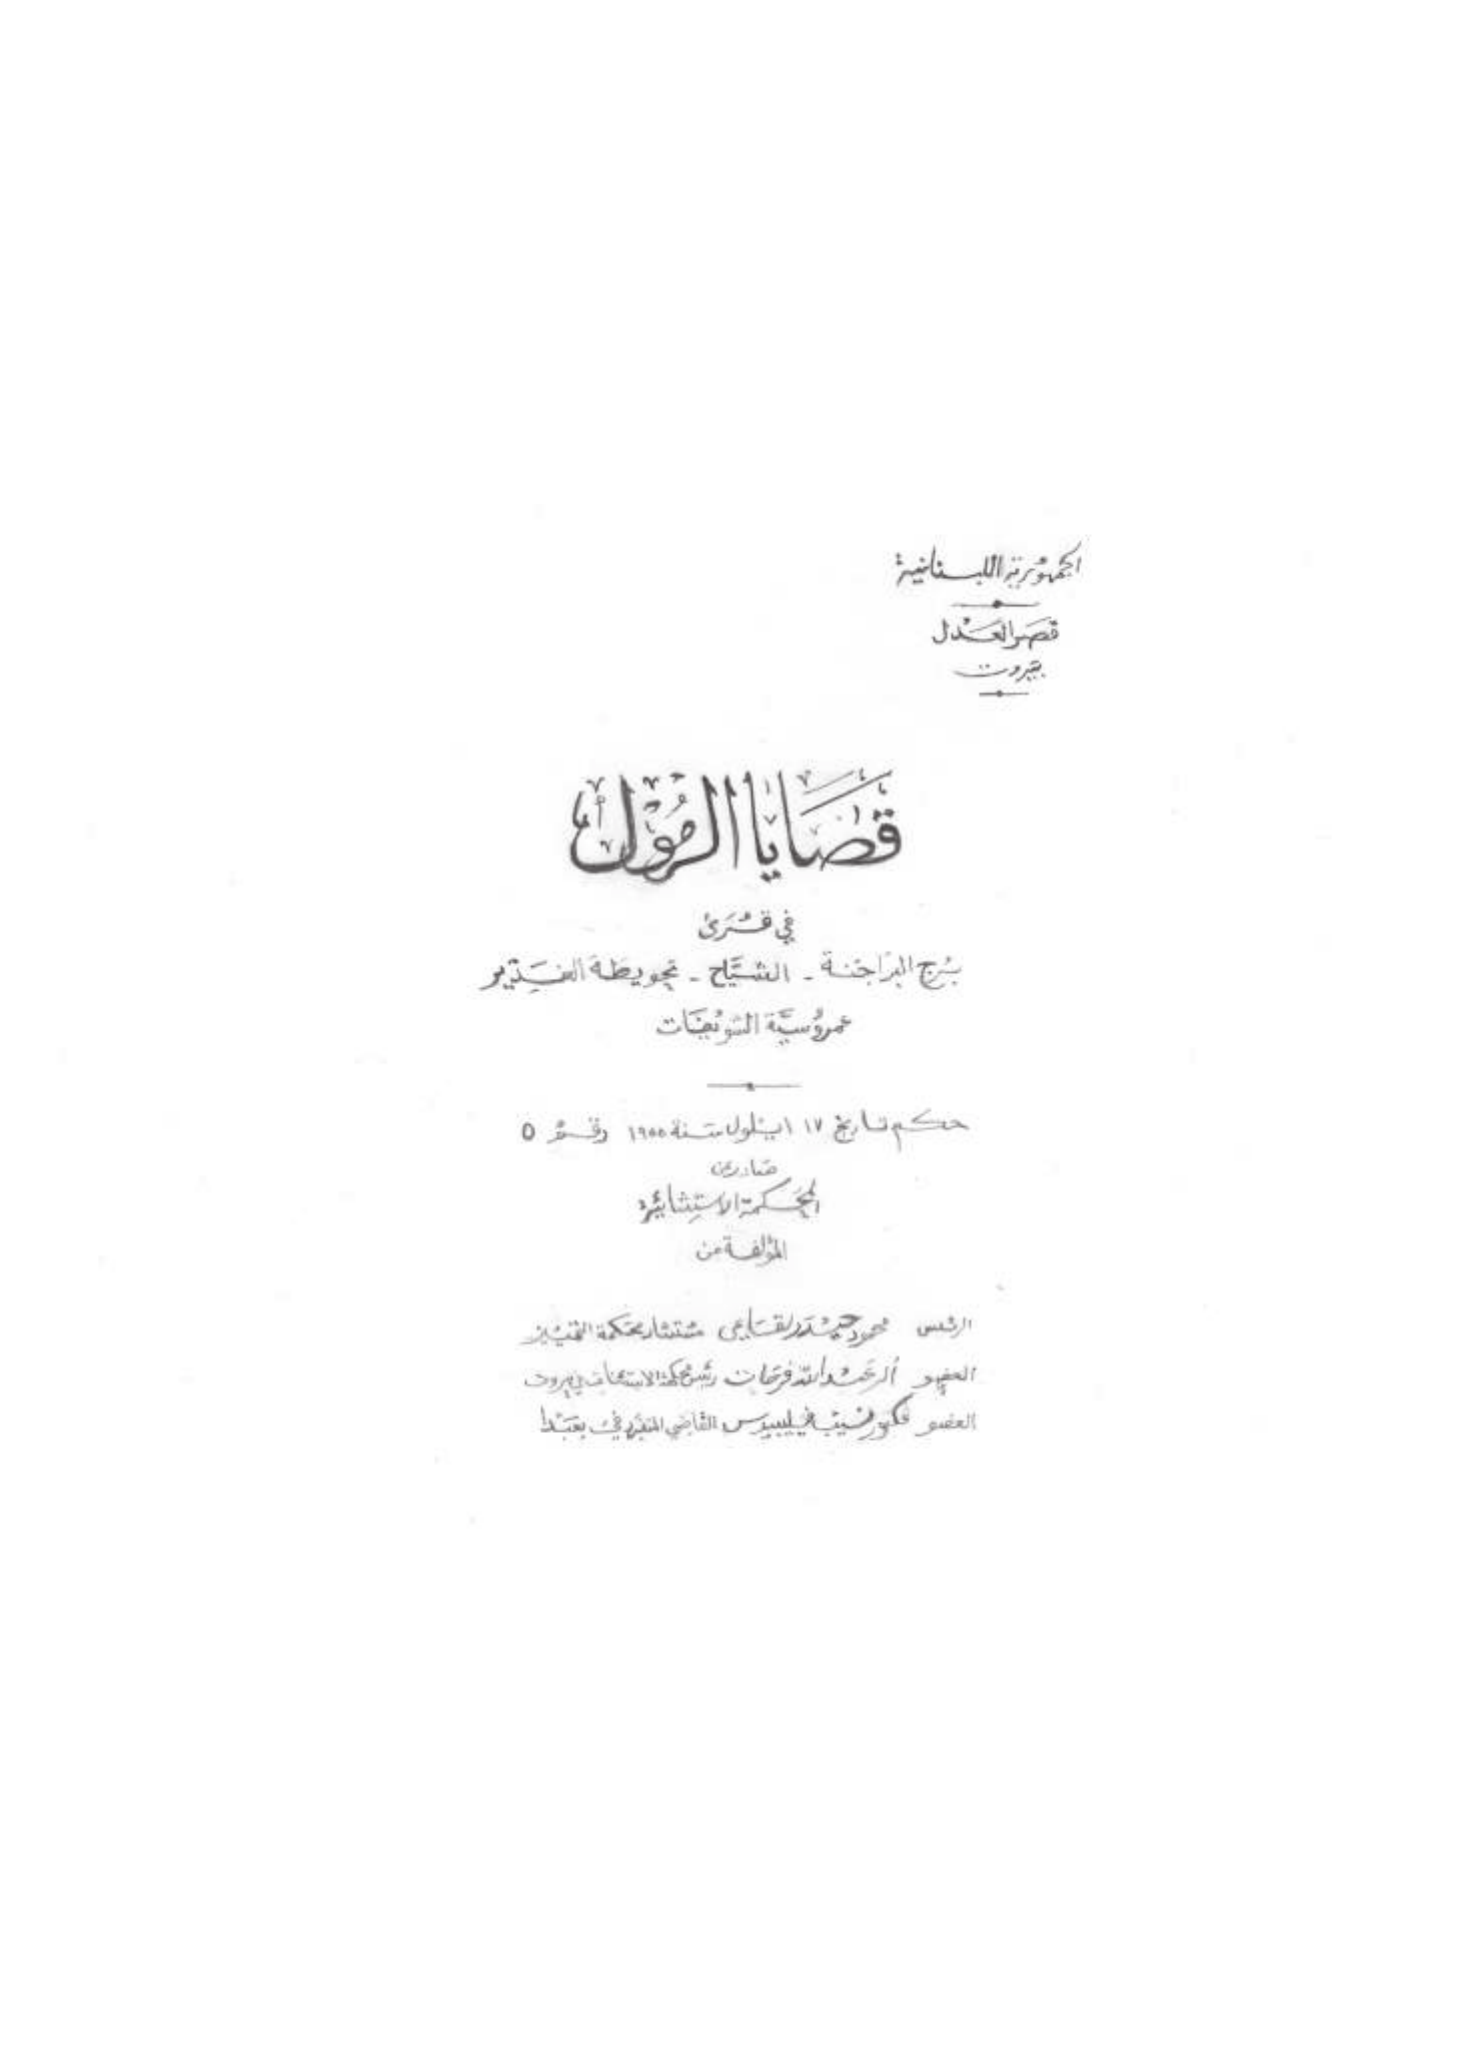 الجمهورية اللبنانية
قصر العدل
بيروت
قضايا الرمول
في قرى
برج البراجنة - الشياح - تحويطة الغدير
عمروسية الشويفات
حكم تاريخ ١٧ ايلول سنة ١٩٥٥ رقم ٥
صادر عن
المحكمة الاستثنائية
المؤلفة من
الرئيس محمود مستشار محكمة التمييز
العضو فرحات رئيس محكمة الاستئناف في بيروت
العضو نسيب فيليبيدس القاضي المنفرد في بعبدا